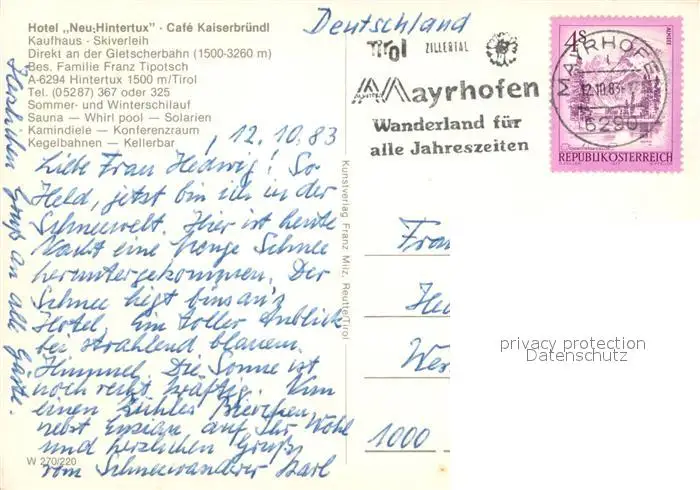 Hotel „Neu-Hintertux" · Café Kaiserbründl
Kaufhaus · Skiverleih
Direkt an der Gletscherbahn (1500-3260 m)
Bes. Familie Franz Tipotsch
A-6294 Hintertux 1500 m/Tirol
Tel. (05287) 367 oder 325
Sommer- und Winterschilauf
Sauna — Whirl pool — Solarien
Kamindiele — Konferenzraum
Kegelbahnen — Kellerbar
Deutschland
Tirol ZILLERTAL
Mayrhofen
Wanderland für
alle Jahreszeiten
MAYRHOFEN
12.10.83
6290
4 S
REPUBLIK ÖSTERREICH
, 12.10.83
Liebe Frau Hedwig! So
Held, jetzt bin ich in der
Schneewelt. Hier ist heute
Nacht eine Menge Schnee
heruntergekommen. Der
Schnee liegt bis an's
Hotel. Ein toller Anblick
bei strahlend blauem
Himmel. Die Sonne ist
noch recht kräftig. Nun
einen kühles Bierchen,
nebst Enzian auf Ihr Wohl
und herzlichen Gruß,
vom Schneewanderer Karl
Herzlichen Gruß an alle Gäste.
Kunstverlag Franz Milz, Reutte/Tirol
W 270/220
Frau
Hed
Wes
1000
privacy protection
Datenschutz